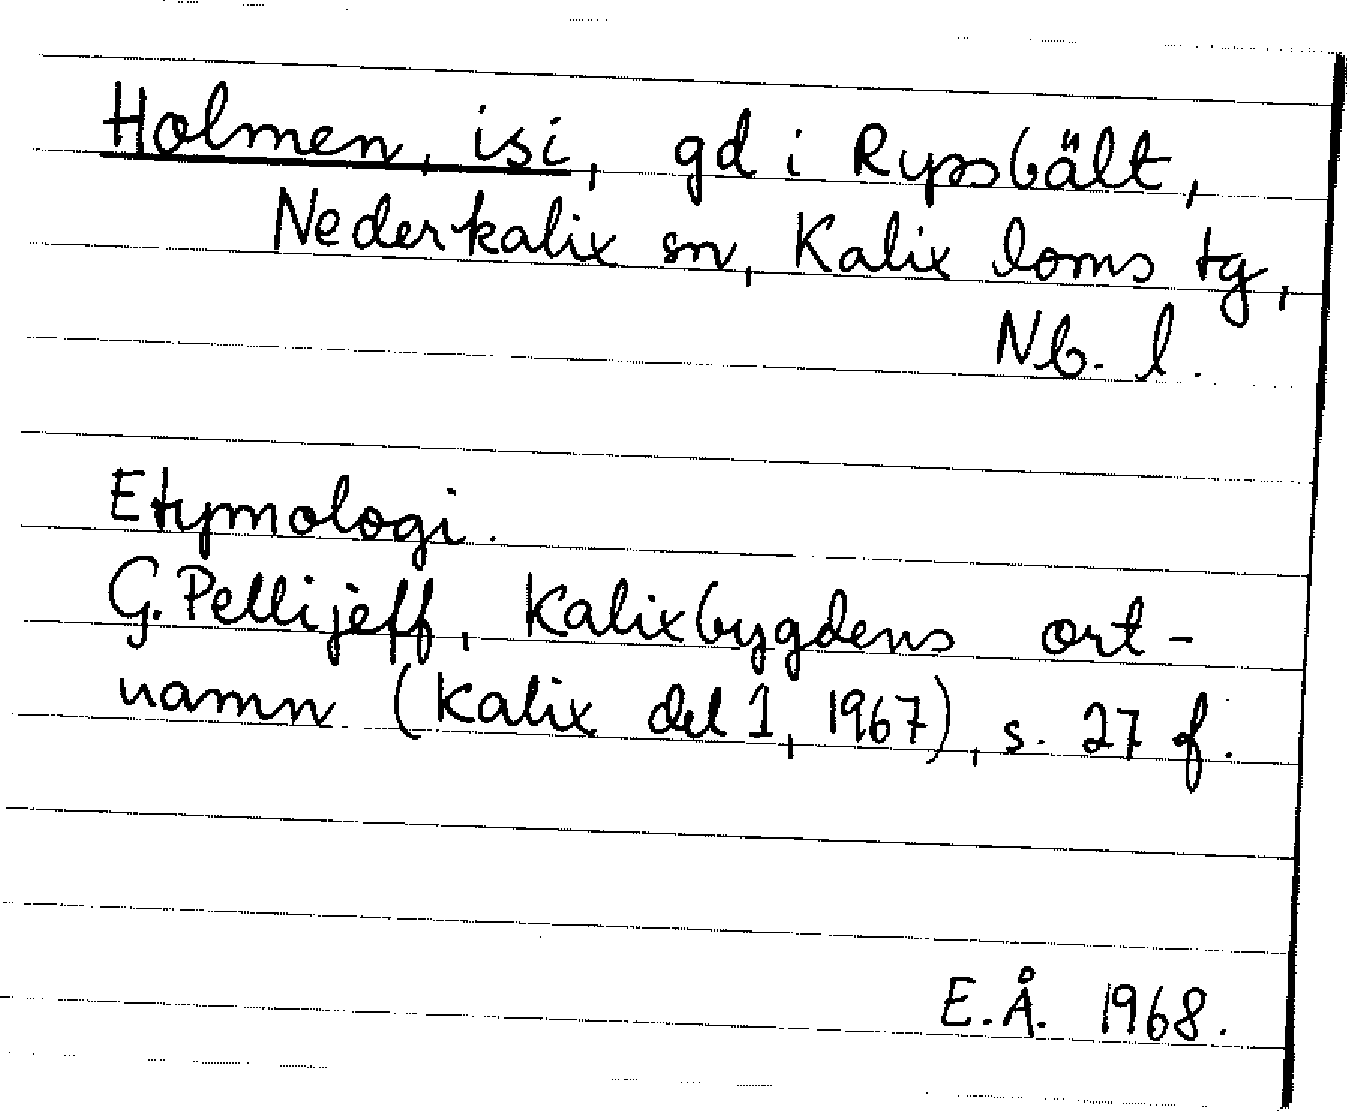 Holmen, isi, gd i Ryssbält,
Nederkalix sn, Kalix loms tg,
Nb. l.
Etymologi.
G. Pellijeff, Kalixbygdens ort-
namn (Kalix del 1, 1967), s. 27 f.
E.Å. 1968.